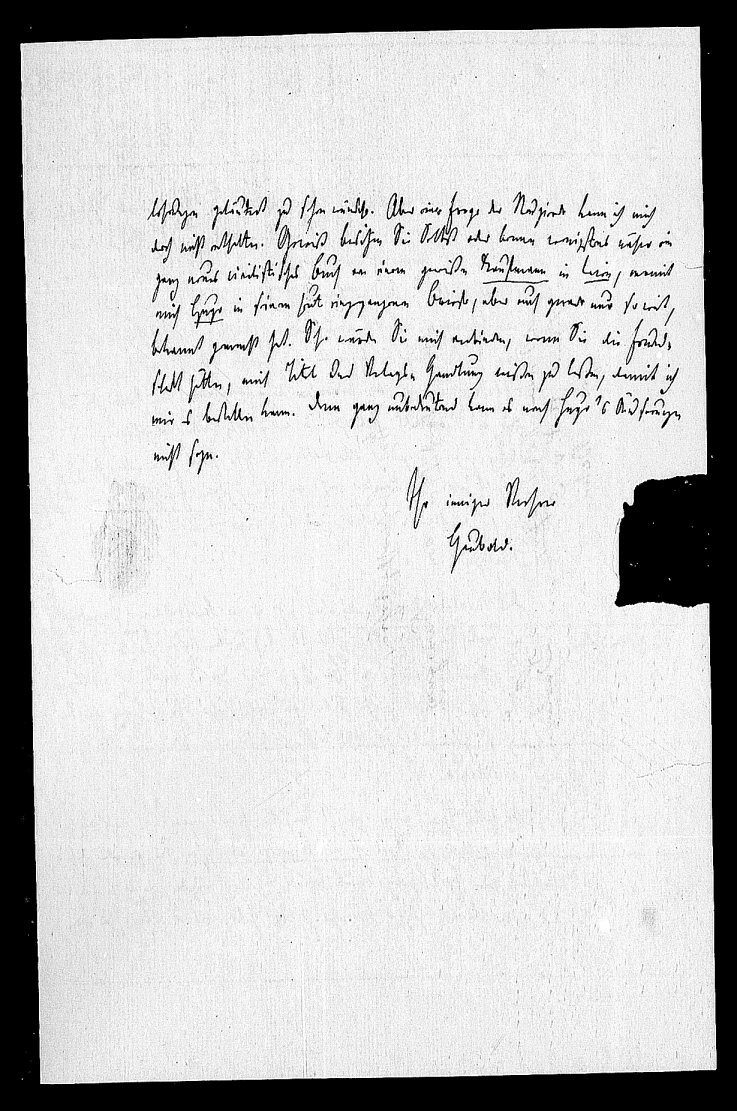 lesungen geläutert zu sehn wünschte. Aber eine Frage der Neugierde kann ich mich
doch nicht enthalten. Gewiß besitzen Sie Selbst oder kennen wenigstens näher ein
ganz neues civilistisches Buch von einem gewissen Kaufmann in, womit
mich Hugo in seinem heut eingegangenen Briefe, aber auch gerade nur so weit,
bekannt gemacht hat. Sehr würden Sie mich verbinden, wenn Sie die Freund-
schaft hätten, mich Titel und Verlags-Handlung wissen zu lassen, damit ich
mir es bestellen kann. Denn ganz unbedeutend kann es nach Hugo's Äußerungen
nicht seyn.
Ihr inniger Verehrer
Haubold.